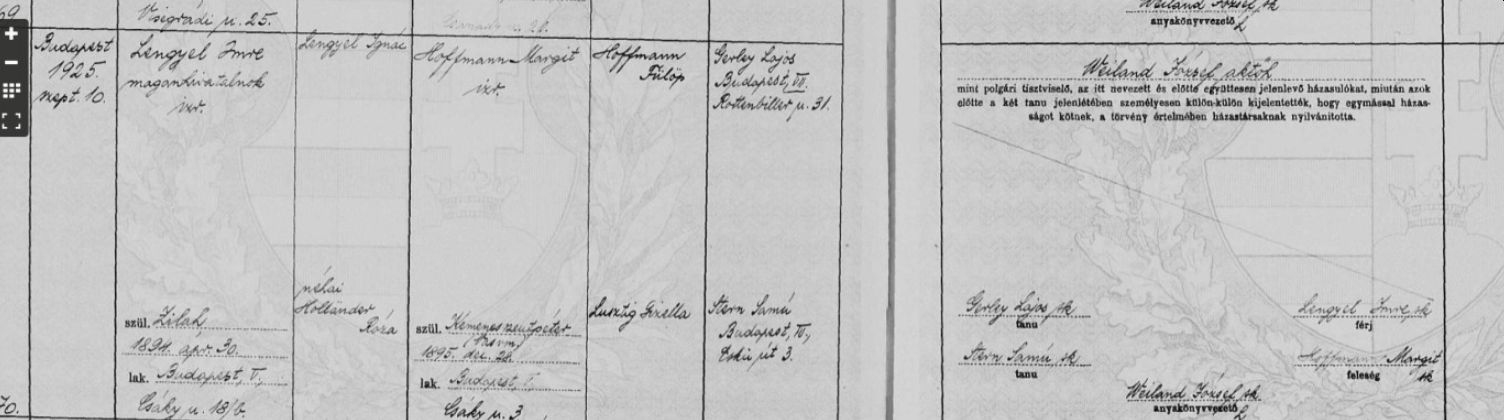 69
Visegrádi u. 25.
Weiland József sk
anyakönyvvezető
Budapest
1925.
szept. 10.
Lengyel Imre
magánhivatalnok
izr.
Lengyel Ignác
Hoffmann Margit
izr.
Hoffmann
Fülöp
Gerley Lajos
Budapest, VII.
Rottenbiller u. 31.
Weiland József aktőh
mint polgári tisztviselő, az itt nevezett és előtte együttesen jelenlevő házasulókat, miután azok
előtte a két tanu jelenlétében személyesen külön-külön kijelentették, hogy egymással házas-
ságot kötnek, a törvény értelmében házastársaknak nyilvánította.
szül. Zilah
1894. apr. 30.
lak. Budapest, V.,
Csáky u. 18/b.
néhai
Holländer
Róza
szül. Kemenesszentpéter
(Vasvm)
1895. dec. 28.
lak. Budapest, V.
Csáky u. 3.
Lusztig Gizella
Stern Samú
Budapest, IV.,
Eskü út 3.
Gerley Lajos sk
tanu
Lengyel Imre sk
férj
Stern Samú sk
tanu
Hoffmann Margit
sk
feleség
Weiland József sk
anyakönyvvezető
70.